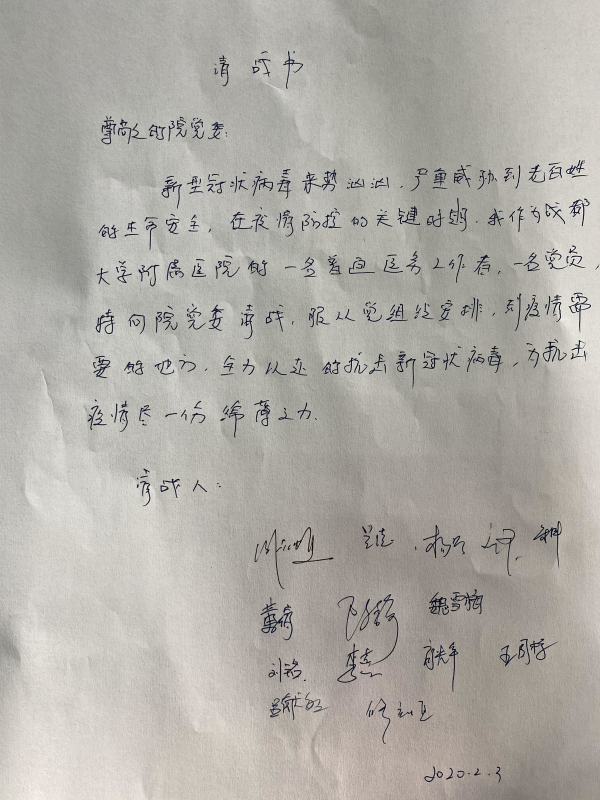 请战书
尊敬的院党委:
新型冠状病毒来势汹汹,严重威胁到老百姓
的生命安全,在疫情防控的关键时期,我作为成都
大学附属医院的一名普通医务工作者,一名党员,
特向院党委请战,服从党组织安排,到疫情需
要的地方,全力以赴的抗击新冠状病毒,为抗击
疫情尽一份绵薄之力.
请战人:
魏雪梅
刘铭
2020.2.3